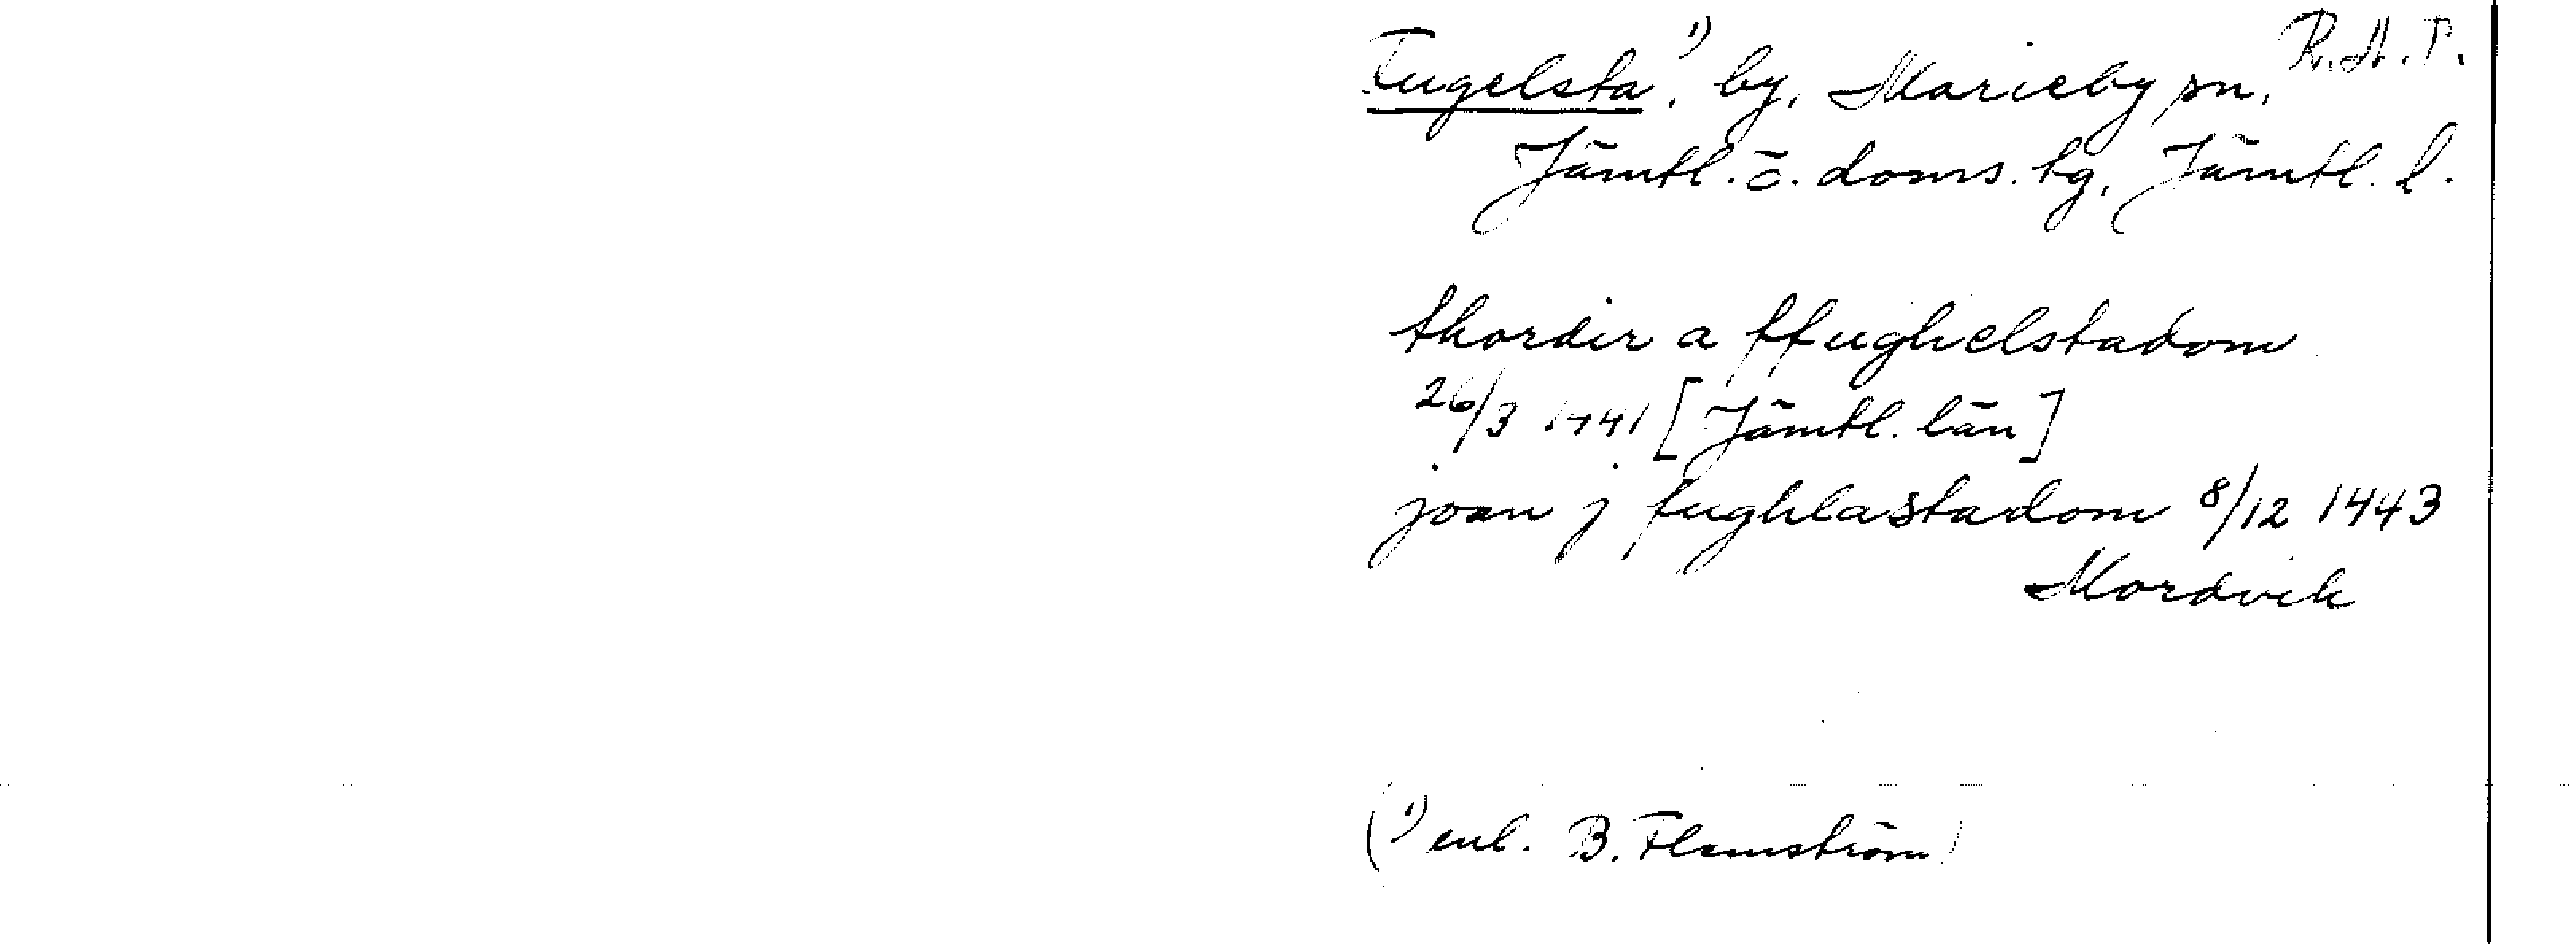 Fugelsta¹⁾, by, Marieby sn, R.A.P.
Jämtl. ö. doms. tg, Jämtl. l.
thordir a ffughelstadom
26/3 1441 [Jämtl. län]
joan j fughlastadom 8/12 1443
Mordvik
(¹⁾ enl. B. Flemström)